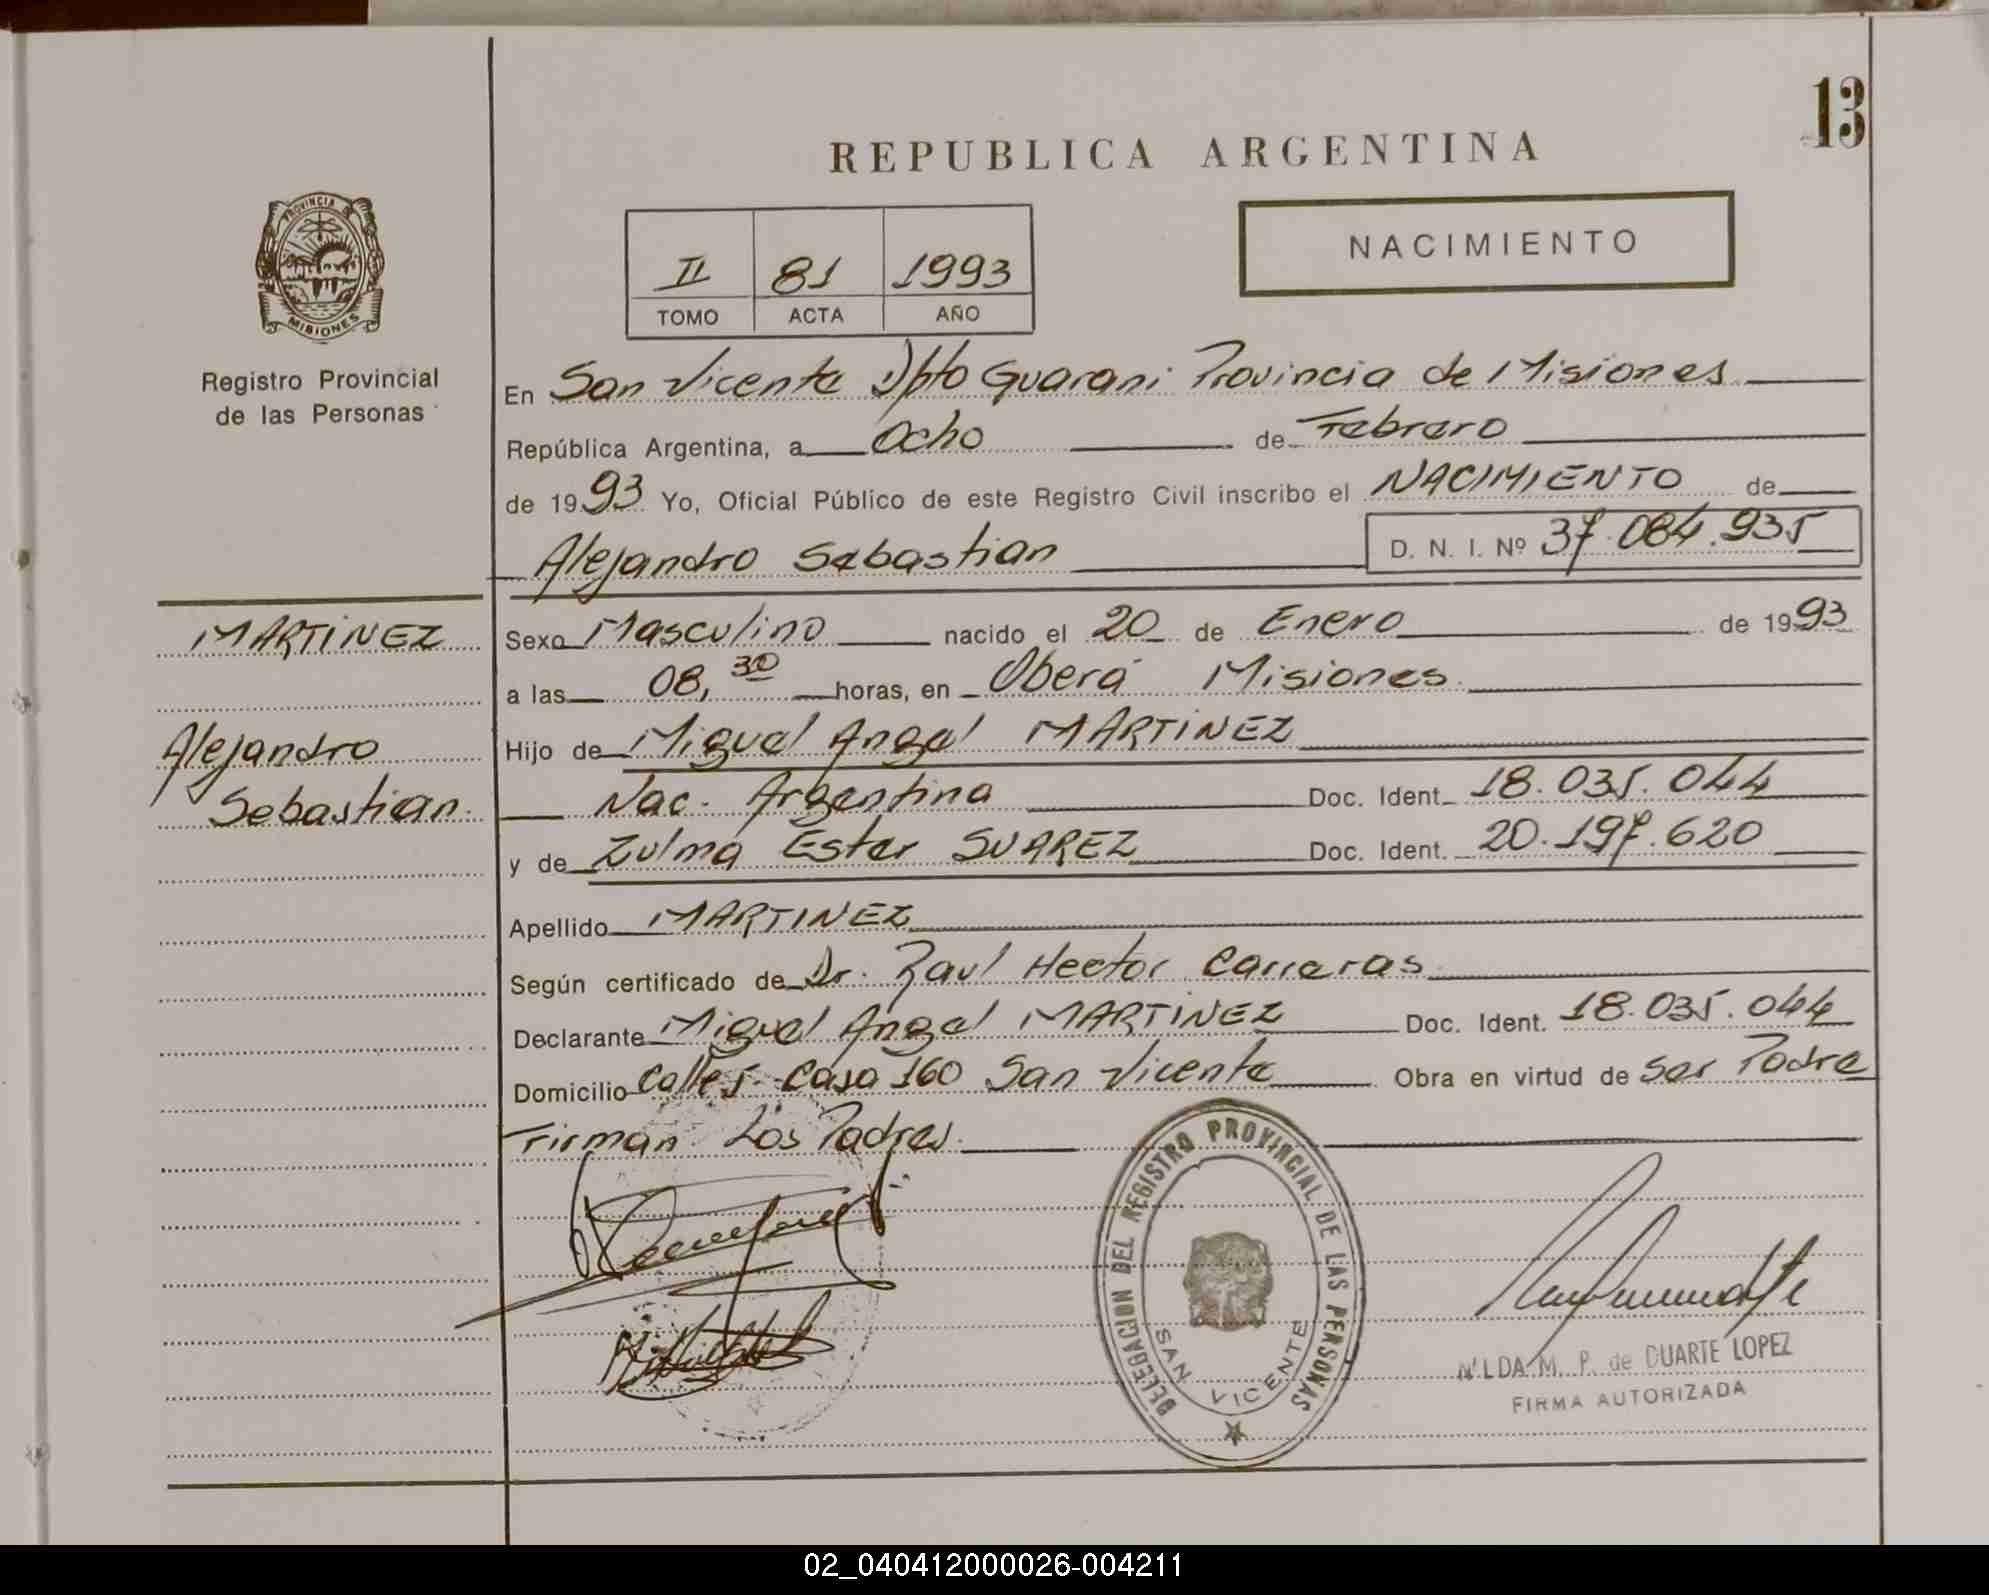 13
REPUBLICA ARGENTINA
PROVINCIA DE
MISIONES
Registro Provincial
de las Personas
II 81 1993
TOMO ACTA AÑO
NACIMIENTO
En San Vicente Dpto Guarani Provincia de Misiones
República Argentina, a Ocho de Febrero
de 1993 Yo, Oficial Público de este Registro Civil inscribo el NACIMIENTO de
Alejandro Sebastian D. N. I. Nº 37.084.935
MARTINEZ
Alejandro
Sebastian.
Sexo Masculino nacido el 20 de Enero de 1993
a las 08,30 horas, en Oberá Misiones
Hijo de Miguel Angel MARTINEZ
Nac. Argentina Doc. Ident. 18.035.044
y de Zulma Ester SUAREZ Doc. Ident. 20.197.620
Apellido MARTINEZ
Según certificado de Dr. Raul Hector Carreras
Declarante Miguel Angel MARTINEZ Doc. Ident. 18.035.044
Domicilio Calle 5 - Casa 160 San Vicente Obra en virtud de Ser Padre
Firman Los Padres.
DELEGACION DEL REGISTRO PROVINCIAL DE LAS PERSONAS
SAN VICENTE
NILDA M. P. de DUARTE LOPEZ
FIRMA AUTORIZADA
02_040412000026-004211